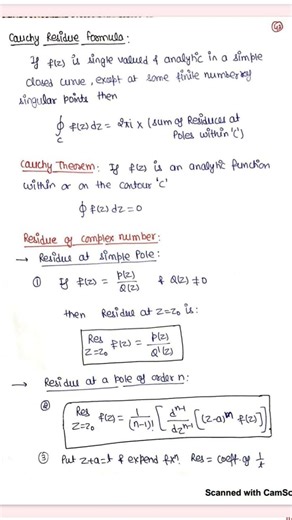 48
Cauchy Residue Formula:
If f(z) is single valued & analytic in a simple
closed curve, exept at some finite number of
singular points then
∮c f(z) dz = 2πi × (sum of Residues at
Poles within 'c')
Cauchy Theorem: If f(z) is an analytic function
within or on the contour 'c'
∮ f(z) dz = 0
Residue of complex number:
→ Residue at simple Pole:
① If f(z) = P(z)/Q(z) & Q(z) ≠ 0
then Residue at z=z₀ is:
Res z=z₀ f(z) = P(z)/Q'(z)
→ Residue at a pole of order n:
② Res z=z₀ f(z) = 1/(n-1)! [dⁿ⁻¹/dzⁿ⁻¹ [(z-a)ⁿ f(z)]]
③ Put z+a=t & expend fxⁿ. Res = coeff. of 1/t
Scanned with CamSc